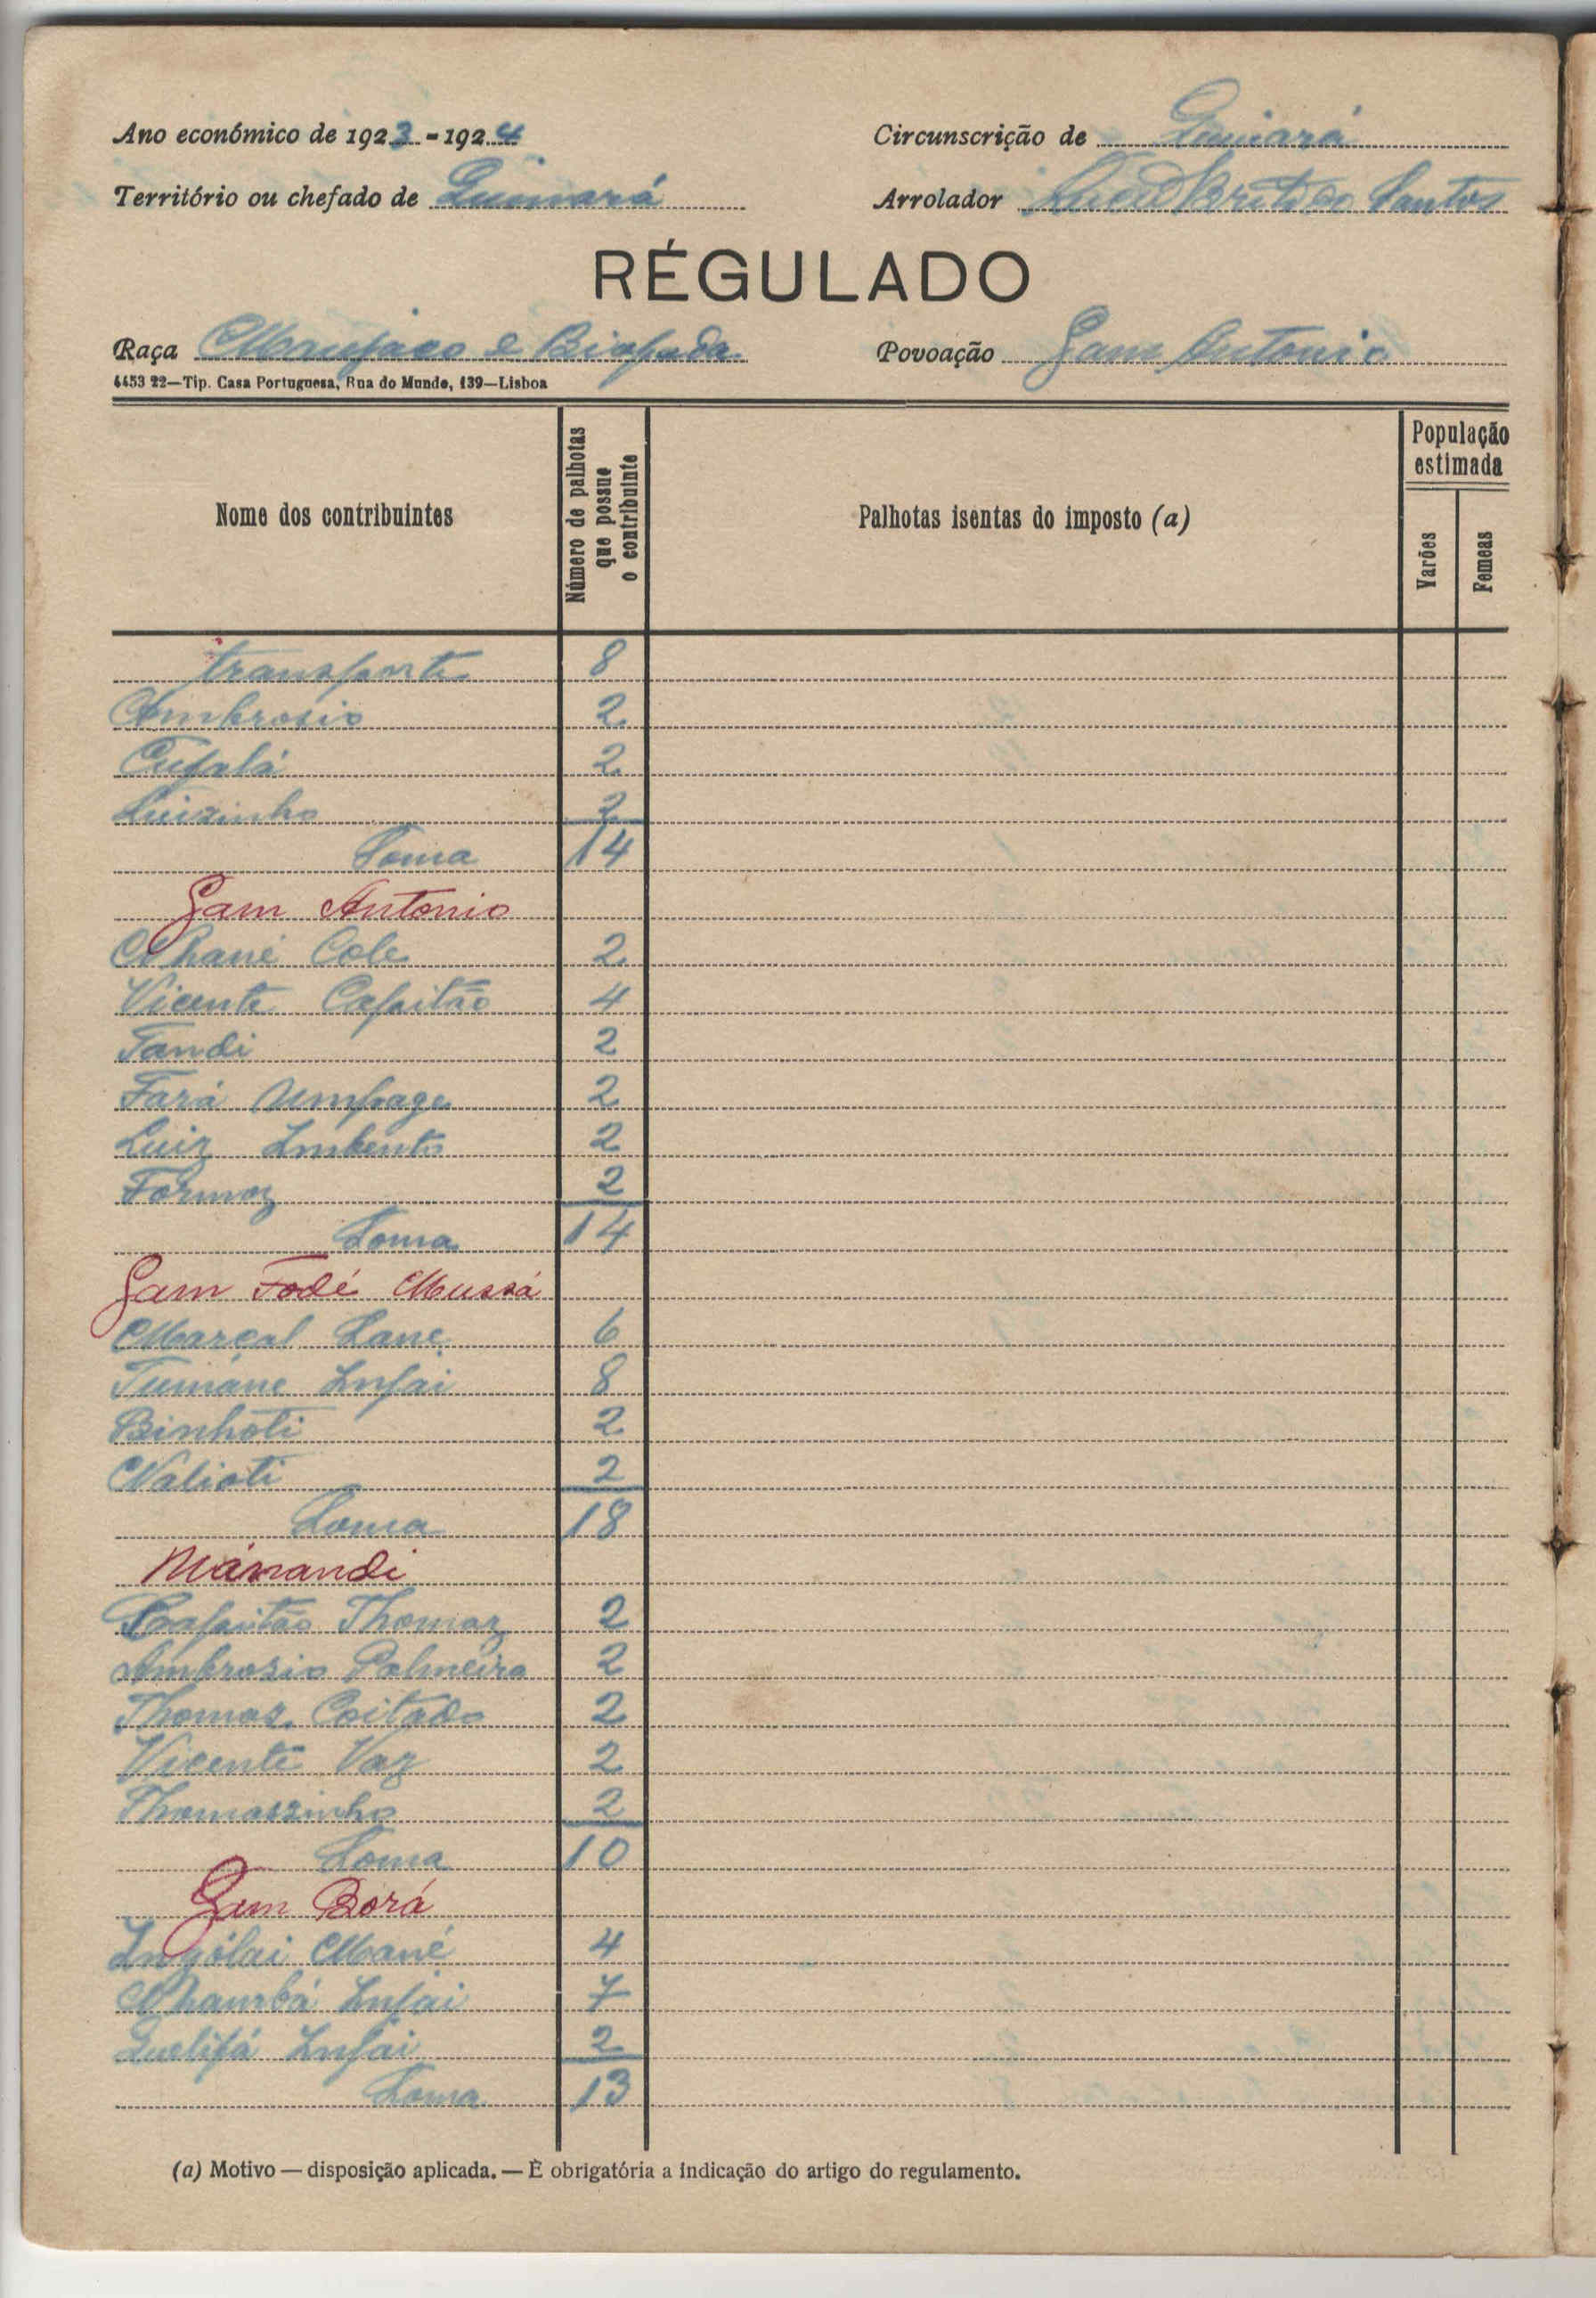 Ano económico de 1923-1924
Circunscrição de Quinará
Território ou chefado de Quinará
Arrolador Brito do Santos
RÉGULADO
Raça Manjaco e Biafada
Povoação Gam Antonio
4453 22—Tip. Casa Portuguesa, Rua do Mundo, 139—Lisboa
Nome dos contribuintes
Número de palhotas que possue o contribuinte
Palhotas isentas do imposto (a)
População estimada
Varões
Femeas
transporte 8
Ambrosio 2
Cufalá 2
Luizinho 2
Soma 14
Gam Antonio
Nhané Cole 2
Vicente Capitão 4
Tandi 2
Fará Umpage 2
Luiz Imbento 2
Formoz 2
Soma 14
Gam Fodé Mussá
Marcal Sane 6
Tumane Infai 8
Binhoti 2
Nalioti 2
Soma 18
Mánandi
Capitão Thomaz 2
Ambrosio Palmeira 2
Thomaz Coitado 2
Vicente Vaz 2
Thomaszinho 2
Soma 10
Gam Borá
Ingólai Mané 4
Nhambá Infai 7
Quelifá Infai 2
Soma 13
(a) Motivo — disposição aplicada. — É obrigatória a indicação do artigo do regulamento.